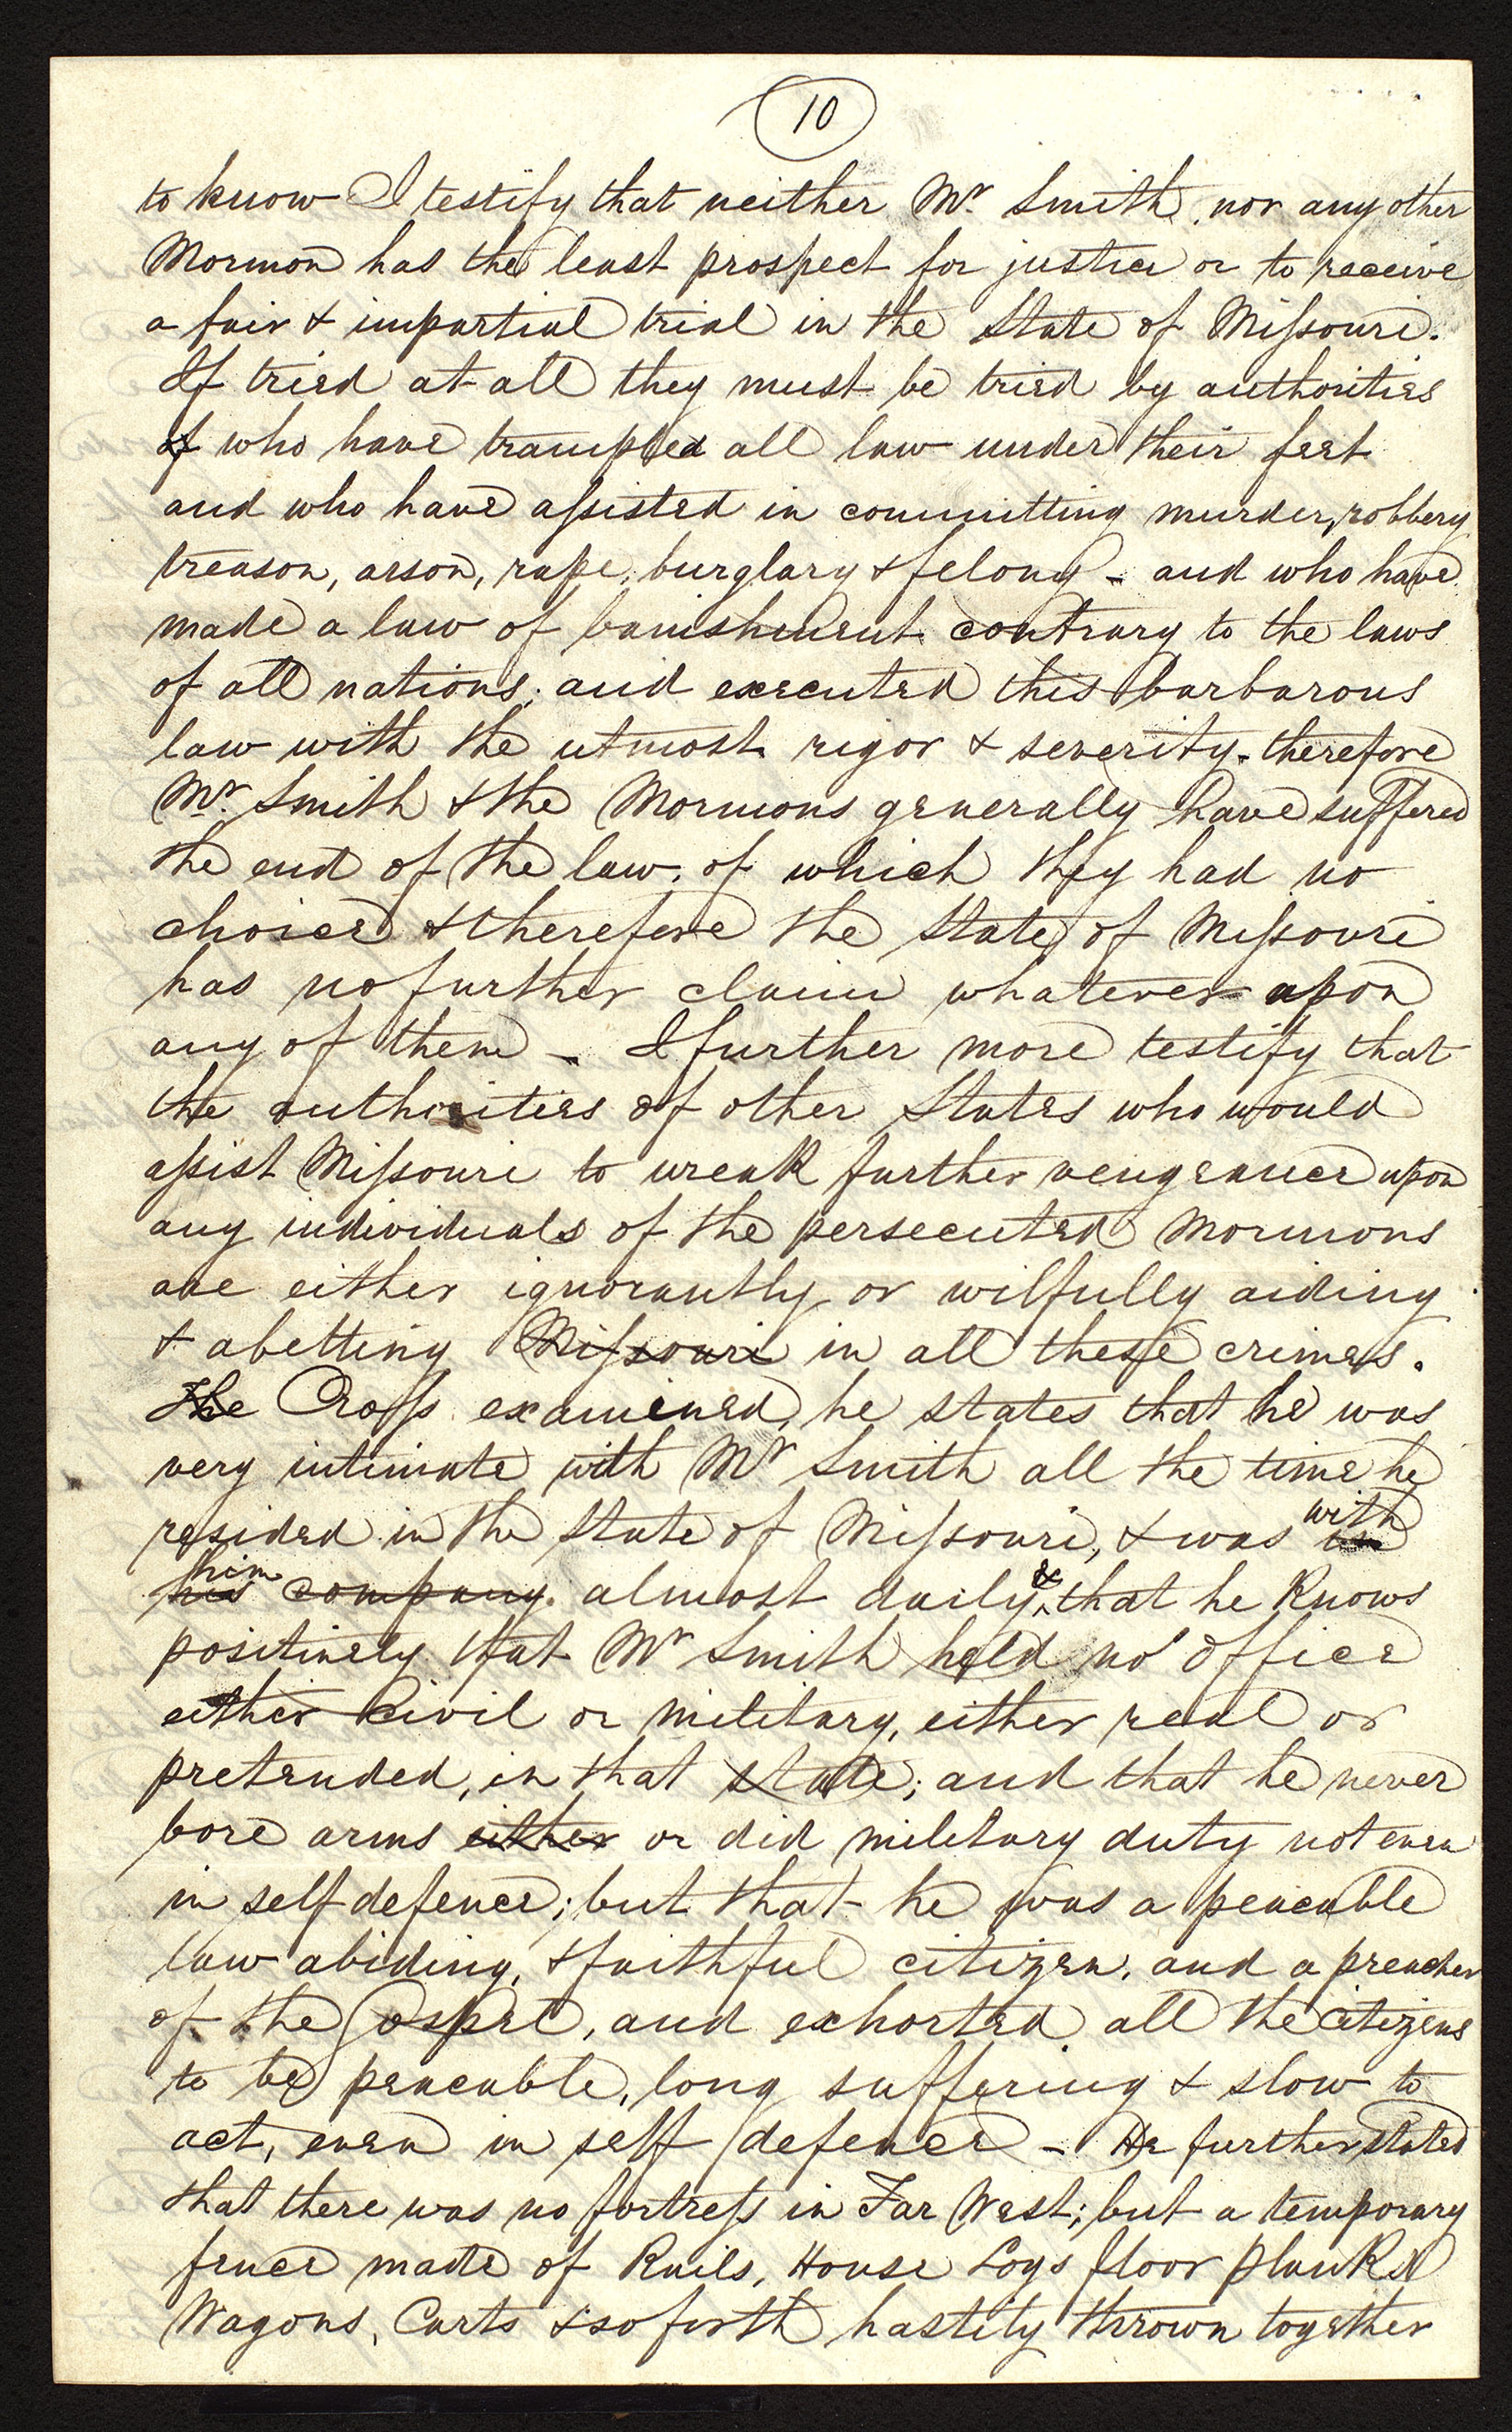 10
to know I testify that neither Mr. Smith, nor any other
Mormon has the least prospect for justice or to receive
a fair & impartial trial in the State of Missouri.
If tried at all they must be tried by authorities
of who have trampled all law under their feet
and who have assisted in committing murder, robbery
treason, arson, rape, burglary & felony - and who have
made a law of banishment contrary to the laws
of all nations; and executed this barbarous
law with the utmost rigor & severity. therefore
Mr. Smith & the Mormons generally have suffered
the end of the law, of which they had no
choice & therefore the State of Missouri
has no further claim whatever upon
any of them - I further more testify that
the authorities of other States who would
assist Missouri to wreak further vengeance upon
any individuals of the persecuted Mormons
are either ignorantly or wilfully aiding
& abetting Missouri in all these crimes.
The Cross examined, he states that he was
very intimate with Mr Smith all the time he
resided in the State of Missouri, & was in with
his him company almost daily, & that he knows
positively that Mr Smith held no office
either Civil or military, either real or
pretended, in that state; and that he never
bore arms either or did military duty not even
in self defence; but that he was a peaceable
law abiding, & faithful citizen, and a preacher
of the Gospel, and exhorted all the citizens
to be peaceable, long suffering & slow to
act, even in self defence - He further stated
that there was no fortress in Far West; but a temporary
fence made of Rails, House Logs floor planks
Wagons, Carts & so forth hastily thrown together